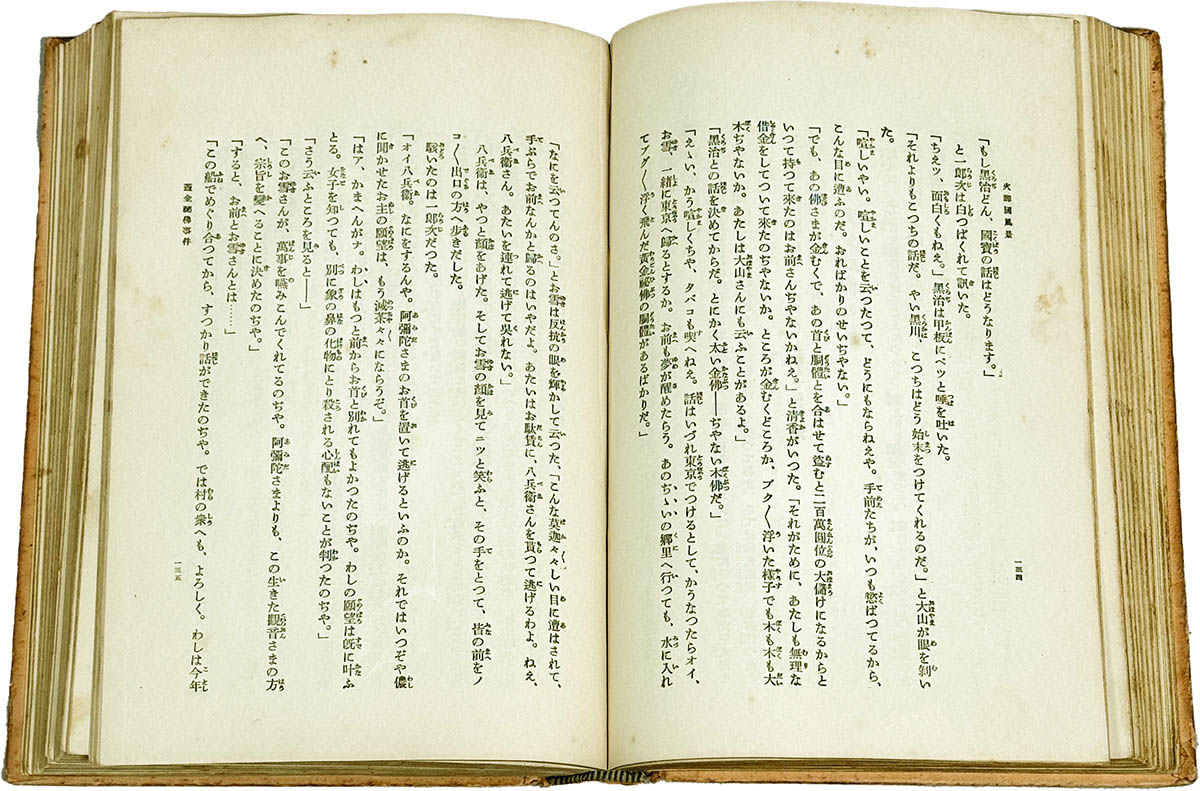 火葬國風景
一三四
「もし黑治どん、國寶の話はどうなります。」
と一郎次は白つぱくれて訊いた。
「ちえツ、面白くもねえ。」黑治は甲板にペツと唾を吐いた。
「それよりもこつちの話だ。やい黑川、こつちはどう始末をつけてくれるのだ。」と大山が眼を剝い
た。
「喧しいやい。喧しいことを云つたつて、どうにもならねえや。手前たちが、いつも慾ばつてるから、
こんな目に遭ふのだ。おればかりのせいぢやない。」
「でも、あの佛さまが金むくで、あの首と胴體とを合はせて盜むと二百萬圓位の大儲けになるからと
いつて持つて來たのはお前さんぢやないかねえ。」と淸香がいつた。「それがために、あたしも無理な
借金をしてついて來たのぢやないか。ところが金むくどころか、プク〱浮いた樣子でも木も木も大
木ぢやないか。あたしは大山さんにも云ふことがあるよ。」
「黑治との話を決めてからだ。とにかく太い金佛――ぢやない木佛だ。」
「えゝい、かう喧しくちや、タバコも喫へねえ。話はいづれ東京でつけるとして、かうなつたらオイ、
お雪、一緖に東京へ歸るとするか。お前も夢が醒めたらう。あのぢゝいの鄕里へ行つても、水に入れ
てプク〱浮く、飛んだ黃金祕佛の胴體があるばかりだ。」
「なにを云つてんのさ。」とお雪は反抗の眼を輝かして云つた、「こんな莫迦々々しい目に遭はされて、
手ぶらでお前なんかと歸るのはいやだよ。あたいはお駄賃に、八兵衞さんを貰つて逃げるわよ。ねえ、
八兵衞さん。あたいを連れて逃げて吳れない。」
八兵衞は、やつと顏をあげた。そしてお雪の顏を見てニツと笑ふと、その手をとつて、皆の前をノ
コ〱出口の方へ步きだした。
駭いたのは一郎次だつた。
「オイ八兵衞。なにをするんや。阿彌陀さまのお首を置いて逃げるといふのか。それではいつぞや儂
に聞かせたお主の願望は、もう滅茶々々にならうぞ。」
「はア、かまへんがナ。わしはもつと前からお首と別れてもよかつたのぢや。わしの願望は旣に叶ふ
とる。女子を知つても、別に象の鼻の化物にとり殺される心配もないことが判つたのぢや。」
「さう云ふところを見ると――」
「このお雪さんが、萬事を嚥みこんでくれてるのぢや。阿彌陀さまよりも、この生きた觀音さまの方
へ、宗旨を變へることに決めたのぢや。」
「すると、お前とお雪さんとは……」
「この船でめぐり合つてから、すつかり話ができたのぢや。では村の衆へも、よろしく。わしは今年
蓋金祕佛事件
一三五